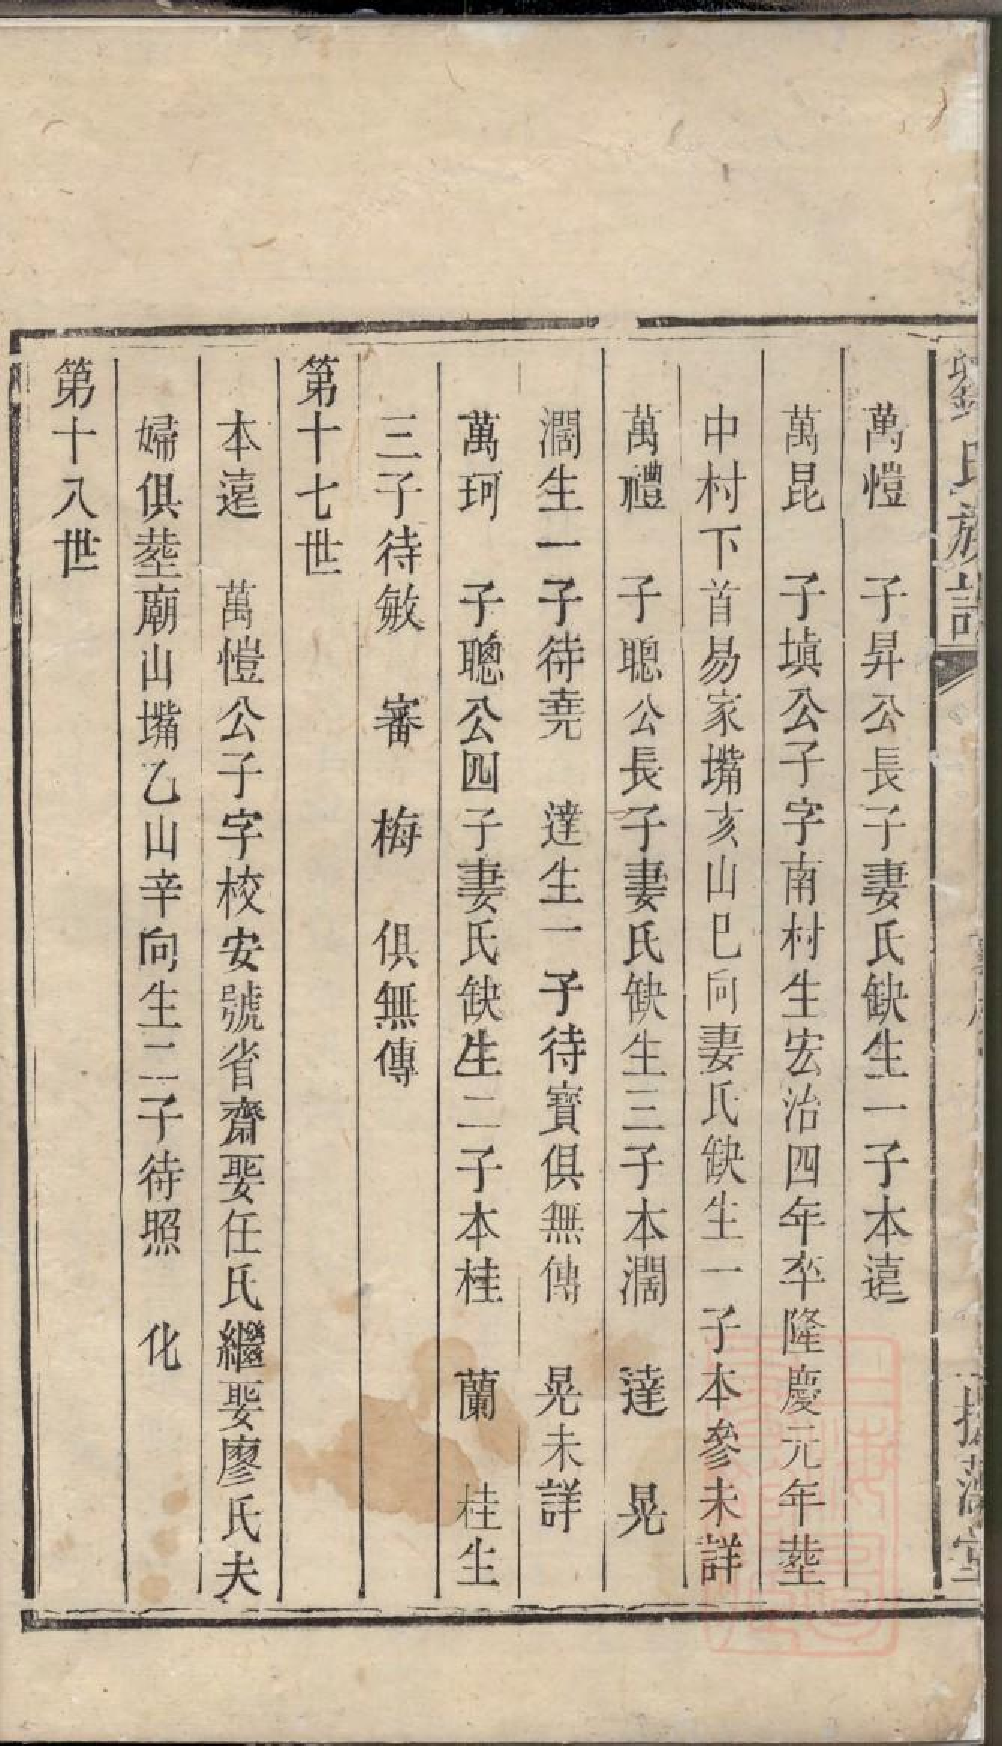 劉氏族譜
萬愷　子昇公長子妻氏缺生一子本遠
萬昆　子塡公子字南村生宏治四年卒隆慶元年塟
中村下首易家嘴亥山巳向妻氏缺生一子本參未詳
萬禮　子聰公長子妻氏缺生三子本濶　達　晃
濶生一子待堯　達生一子待寳俱無傳　晃未詳
萬珂　子聰公四子妻氏缺生二子本桂　蘭　桂生
三子待敏　審　梅　俱無傳
第十七世
本遠　萬愷公子字校安號省齋娶任氏繼娶廖氏夫
婦俱塟廟山嘴乙山辛向生二子待照　化
第十八世